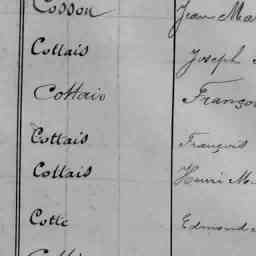 Cosson Jean Ma
Collais Joseph
Collais Franço
Collais François
Collais Henri M
Colle Edmond